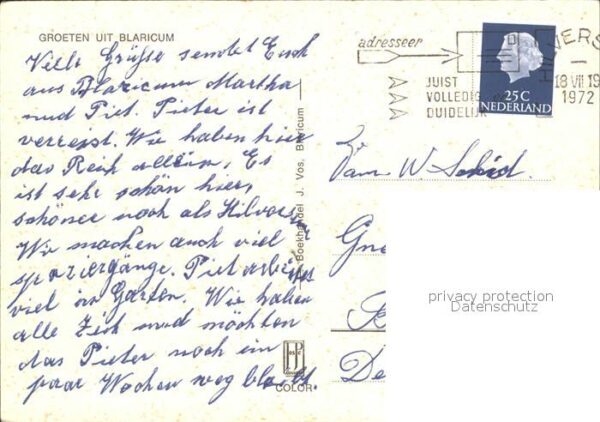 GROETEN UIT BLARICUM
Veile Grüsse sendet Euch
aus Blaricum Martha
und Piet. Pieter ist
verreist. Wie haben hier
das Reich allein, Es
ist sehr schön hier,
schöner noch als Hilvers
Wir machen auch viel
spaziergänge. Piet arbeitet
viel im Garten. Wie haben
alle Zeit und möchten
das Pieter noch ein
paar Wochen weg bleibt.
Boekhandel J. Vos, Blaricum
COLOR
adresseer
JUIST
VOLLEDIG
DUIDELIJK
HILVERS
18 VII 19
1972
25 C
NEDERLAND
Dam W.
Gn
De
privacy protection
Datenschutz